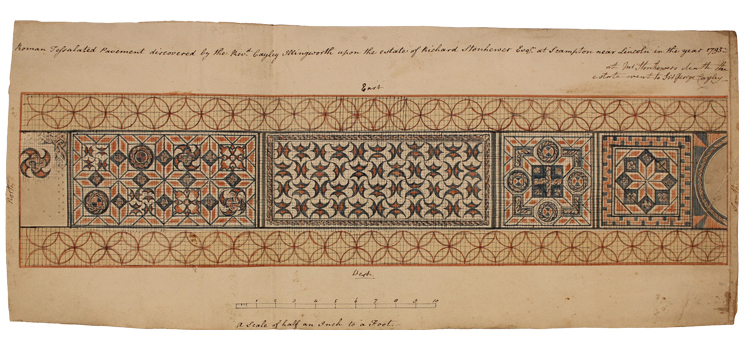 Roman Tessalated Pavement discovered by the Rev.d Cayley Illingworth upon the estate of Richard Stonhewer Esq.r at Scampton near Lincoln in the year 1795
at Mr Stonhewers death the
estate went to Sr George Cayley
East
North
South
West
1 2 3 4 5 6 7 8 9 10
A Scale of half an Inch to a Foot.